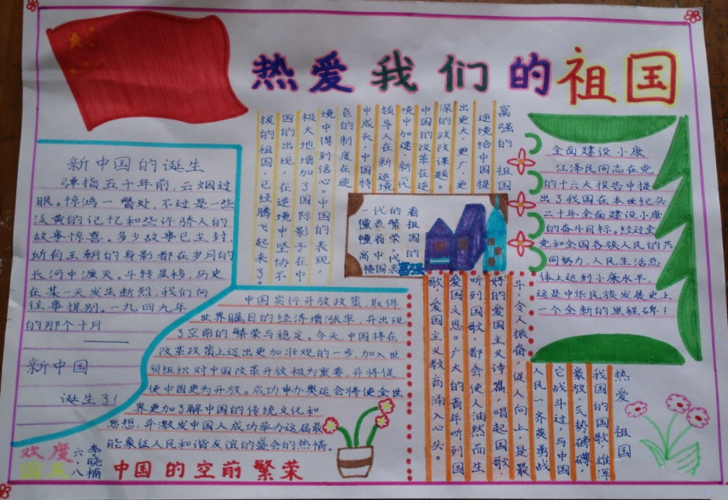 热爱我们的祖国
新中国的诞生
弹指五千年前,云烟过
眼。惊鸿一瞥处,不过是一些
泛黄的记忆和些许骄人的
故事惊喜。多少故事已尘封,
历史
在某一天发生断裂,我们向
往事提别。一九四九年
的那个十月——
新中国
诞生了!
富强的祖国
逆境给中国提
出更大、更广、更
深的政改课题。
中国的改革在逆
境中加建、新一代
领导人在新逆境
中成长,中国特
色的制度在逆
境中得到信心。中国的表现,
极大地增加了国际影响子在中
国的出现,在逆境中坚协不
拔的祖国,己经腾飞起来了。
看祖国的富强
全面建设小康
江泽民同志在党
的十六大报告中提
出了我国在本世纪头
二十年全面建设小康
的奋斗目标。经过全
党和全国各族人民的共
同努力,人民生活总
体上达到小康水平,
这是中华民族发展史上
一个全新的里程碑!
中国实行开放政策,取得
世界瞩目的经济增张率,并出现
了空前的繁荣与稳定。今天,中国将在
改革政策上迈出更加壮观的一步,加入世
贸组织对中国改革开放极为重要,并将促
使中国更为开放。成功申办奥运会将使全世
界更加了解中国的传统文化和
思想,并激发中国人成功举办这届最
能象征人民和谐友谊的盛会的热情。
中国的空前繁荣
热爱祖国
我国的国歌雄浑
豪放,气势磅礴,
它战斗过,与中国
人民一齐英勇战
斗,令人振奋,促人向上,是最
好的爱国主义诗篇,唱起国歌,
听到国歌,都会使人油然而生
爱国之思。广大的青年听到国
歌,爱国主义教尚涌入心头。
欢度
国庆
六.八
李晓楠